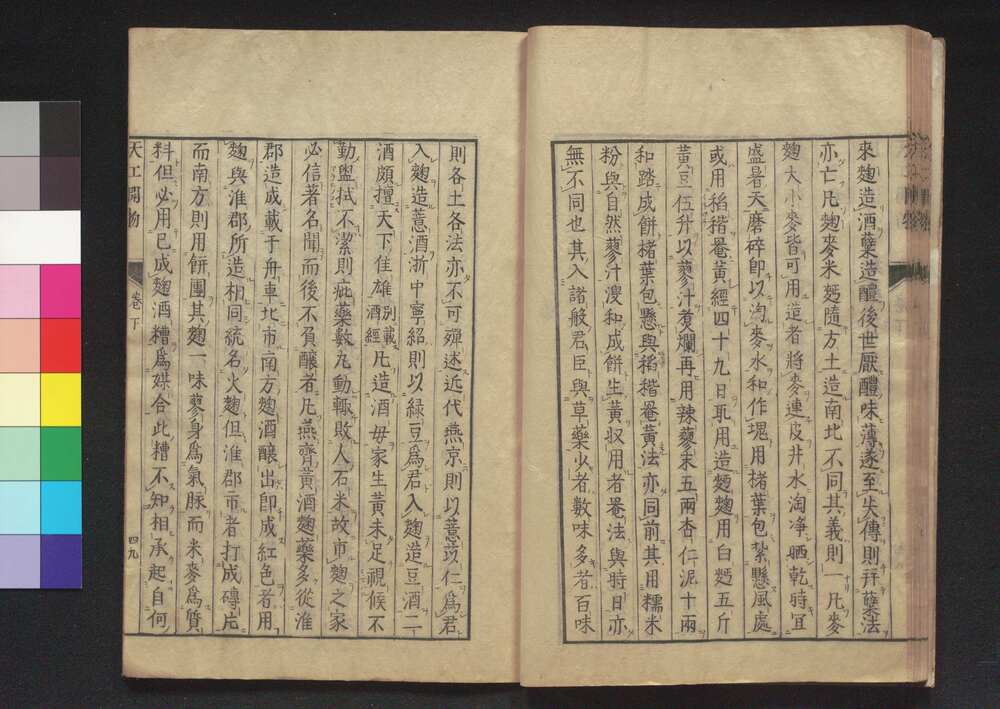 來麹造酒糵造醴後世厭醴味薄遂至失傳則并糵法
亦亡凡麹麥米麪隨方土造南北不同其義則一凡麥
麹大小麥皆可用造者將麥連皮井水淘淨晒乾時宜
盛暑天磨碎即以淘麥水和作塊用楮葉包紮懸風處
或用稻稭罨黃經四十九日取用造麪麹用白麪五斤
黃豆伍升以蓼汁煑爛再用辣蓼末五兩杏仁泥十兩
和踏成餅楮葉包懸與稻稭罨黃法亦同前其用糯米
粉與自然蓼汁溲和成餅生黃収用者罨法與時日亦
無不同也其入諸般君臣與草藥少者數味多者百味
則各土各法亦不可殫述近代燕京則以薏苡仁爲君
入麹造薏酒浙中寧紹則以綠豆爲君入麹造豆酒二
酒頗擅天下佳雄別載酒經凡造酒毋家生黃未足視候不
勤盥拭不潔則疵藥數丸動輒敗人石米故市麹之家
必信著名聞而後不負釀者凡燕齊黃酒麹藥多從淮
郡造成載于舟車北市南方麹酒釀出卽成紅色者用
麹與淮郡所造相同統名火麹但淮郡市者打成磚片
而南方則用餅團其麹一味蓼身爲氣脉而米麥爲質
料但必用已成麹酒糟爲媒合此糟不知相承起自何
天工開物 卷下 四九